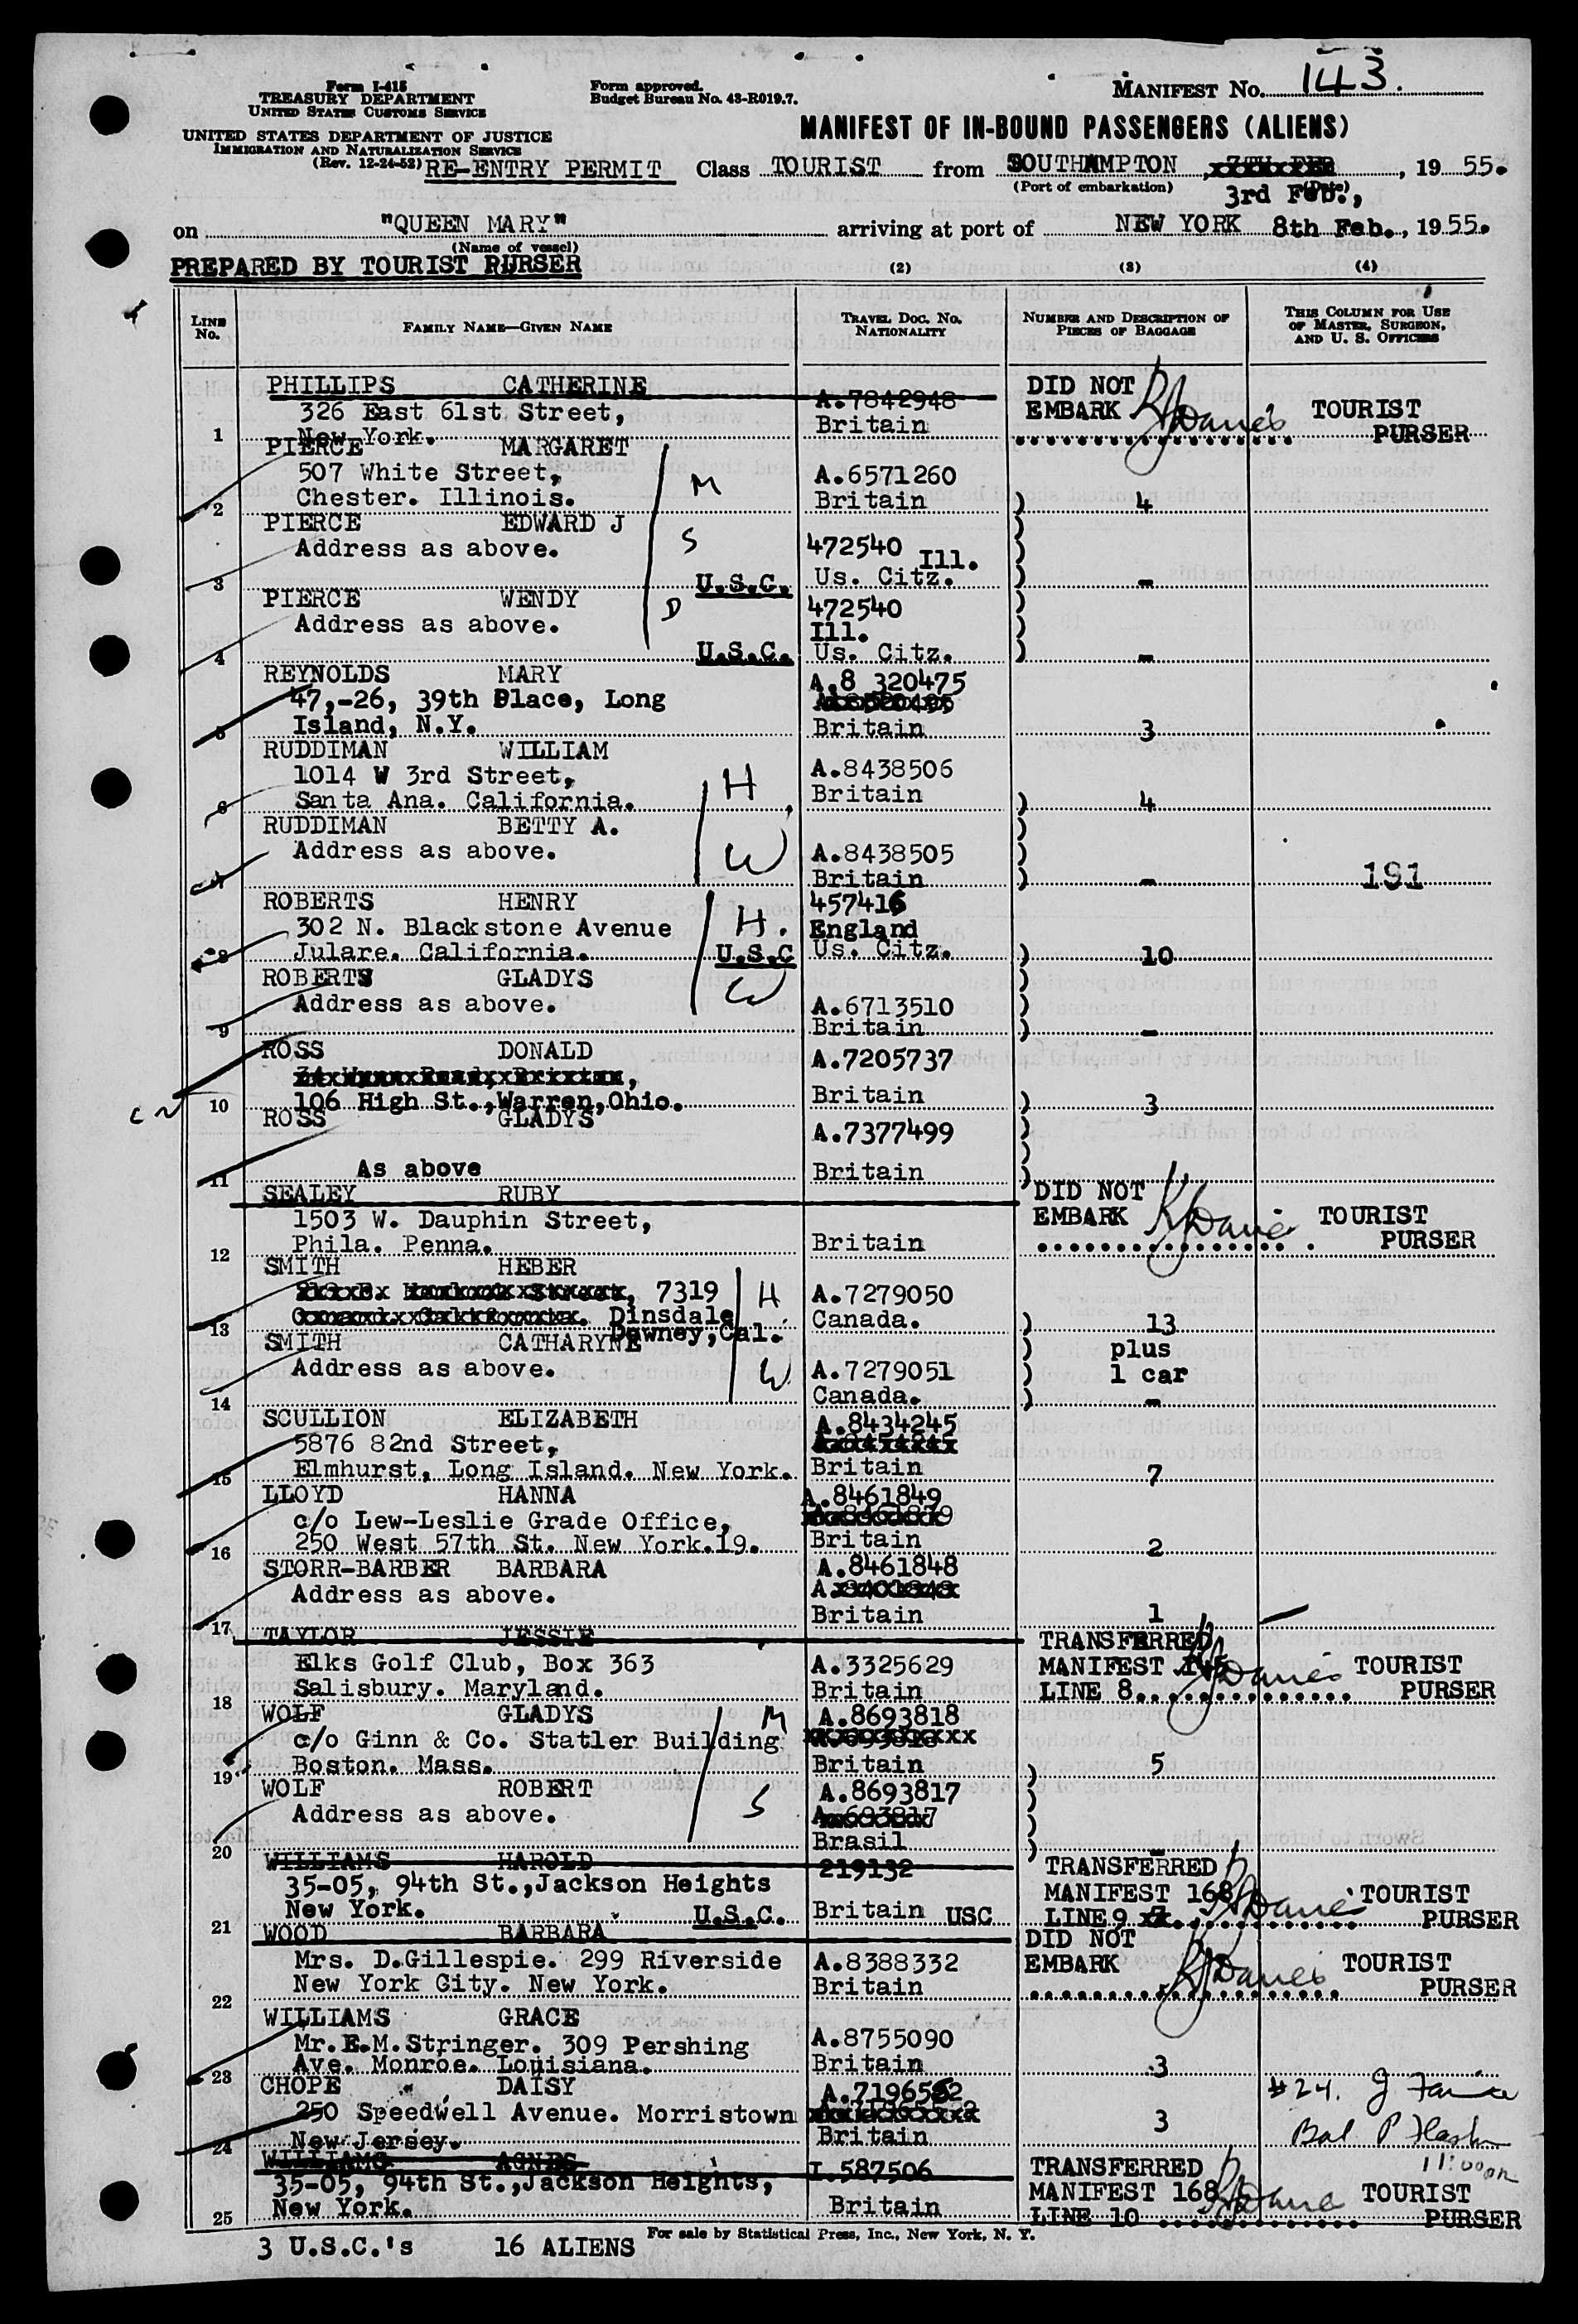 Form I-415
TREASURY DEPARTMENT
UNITED STATES CUSTOMS SERVICE
UNITED STATES DEPARTMENT OF JUSTICE
IMMIGRATION AND NATURALIZATION SERVICE
(Rev. 12-24-52)
Form approved.
Budget Bureau No. 43-R019.7.
MANIFEST NO. 143.
MANIFEST OF IN-BOUND PASSENGERS (ALIENS)
RE-ENTRY PERMIT Class TOURIST from SOUTHAMPTON, 7TH FEB, 1955.
(Port of embarkation) (Date)
3rd Feb.,
on "QUEEN MARY" arriving at port of NEW YORK 8th Feb., 1955.
(Name of vessel)
PREPARED BY TOURIST PURSER (2) (3) (4)
LINE NO. FAMILY NAME—GIVEN NAME TRAVEL DOC. NO. NATIONALITY NUMBER AND DESCRIPTION OF PIECES OF BAGGAGE THIS COLUMN FOR USE OF MASTER, SURGEON, AND U. S. OFFICERS
PHILLIPS CATHERINE A.7842948 DID NOT
326 East 61st Street, Britain EMBARK TOURIST
1 New York. PURSER
PIERCE MARGARET
507 White Street, M A.6571260
2 Chester. Illinois. Britain ) 4
PIERCE EDWARD J
Address as above. S 472540 Ill.
3 U.S.C. Us. Citz. ) -
PIERCE WENDY 472540
Address as above. D Ill.
4 U.S.C. Us. Citz. ) -
REYNOLDS MARY A.8 320475
47,-26, 39th Place, Long
5 Island, N.Y. Britain 3
RUDDIMAN WILLIAM
1014 W 3rd Street, H A.8438506
6 Santa Ana. California. Britain ) 4
RUDDIMAN BETTY A.
Address as above. W A.8438505
7 Britain ) - 191
ROBERTS HENRY 457416
302 N. Blackstone Avenue H. England
8 Julare. California. U.S.C Us. Citz. ) 10
ROBERTS GLADYS W
Address as above. A.6713510
9 Britain ) -
ROSS DONALD A.7205737
10 106 High St.,Warren,Ohio. Britain ) 3
ROSS GLADYS A.7377499
11 As above Britain )
SEALEY RUBY DID NOT
1503 W. Dauphin Street, EMBARK TOURIST
12 Phila. Penna. Britain PURSER
SMITH HEBER
7319 H A.7279050
13 Dinsdale Canada. ) 13
Downey,Cal.
SMITH CATHARYNE ) plus
Address as above. W A.7279051 ) 1 car
14 Canada. ) -
SCULLION ELIZABETH A.8434245
5876 82nd Street,
15 Elmhurst, Long Island. New York. Britain 7
LLOYD HANNA A.8461849
c/o Lew-Leslie Grade Office,
16 250 West 57th St. New York.19. Britain 2
STORR-BARBER BARBARA A.8461848
Address as above.
17 Britain 1
TAYLOR JESSIE TRANSFERRED
Elks Golf Club, Box 363 A.3325629 MANIFEST 145 TOURIST
18 Salisbury. Maryland. Britain LINE 8 PURSER
WOLF GLADYS M A.8693818
c/o Ginn & Co. Statler Building
19 Boston. Mass. Britain ) 5
WOLF ROBERT A.8693817
Address as above. S
20 Brasil ) -
WILLIAMS HAROLD 219132 TRANSFERRED
35-05, 94th St.,Jackson Heights MANIFEST 168 TOURIST
21 New York. U.S.C. Britain USC LINE 9 PURSER
WOOD BARBARA DID NOT
Mrs. D.Gillespie. 299 Riverside A.8388332 EMBARK TOURIST
22 New York City. New York. Britain PURSER
WILLIAMS GRACE
Mr.E.M.Stringer. 309 Pershing A.8755090
23 Ave. Monroe. Louisiana. Britain 3
CHOPE DAISY #24.
250 Speedwell Avenue. Morristown 3
24 New Jersey. Britain
WILLIAMS AGNES I.587506 TRANSFERRED
35-05, 94th St.,Jackson Heights, MANIFEST 168 TOURIST
25 New York. Britain LINE 10 PURSER
For sale by Statistical Press, Inc., New York, N. Y.
3 U.S.C.'s 16 ALIENS